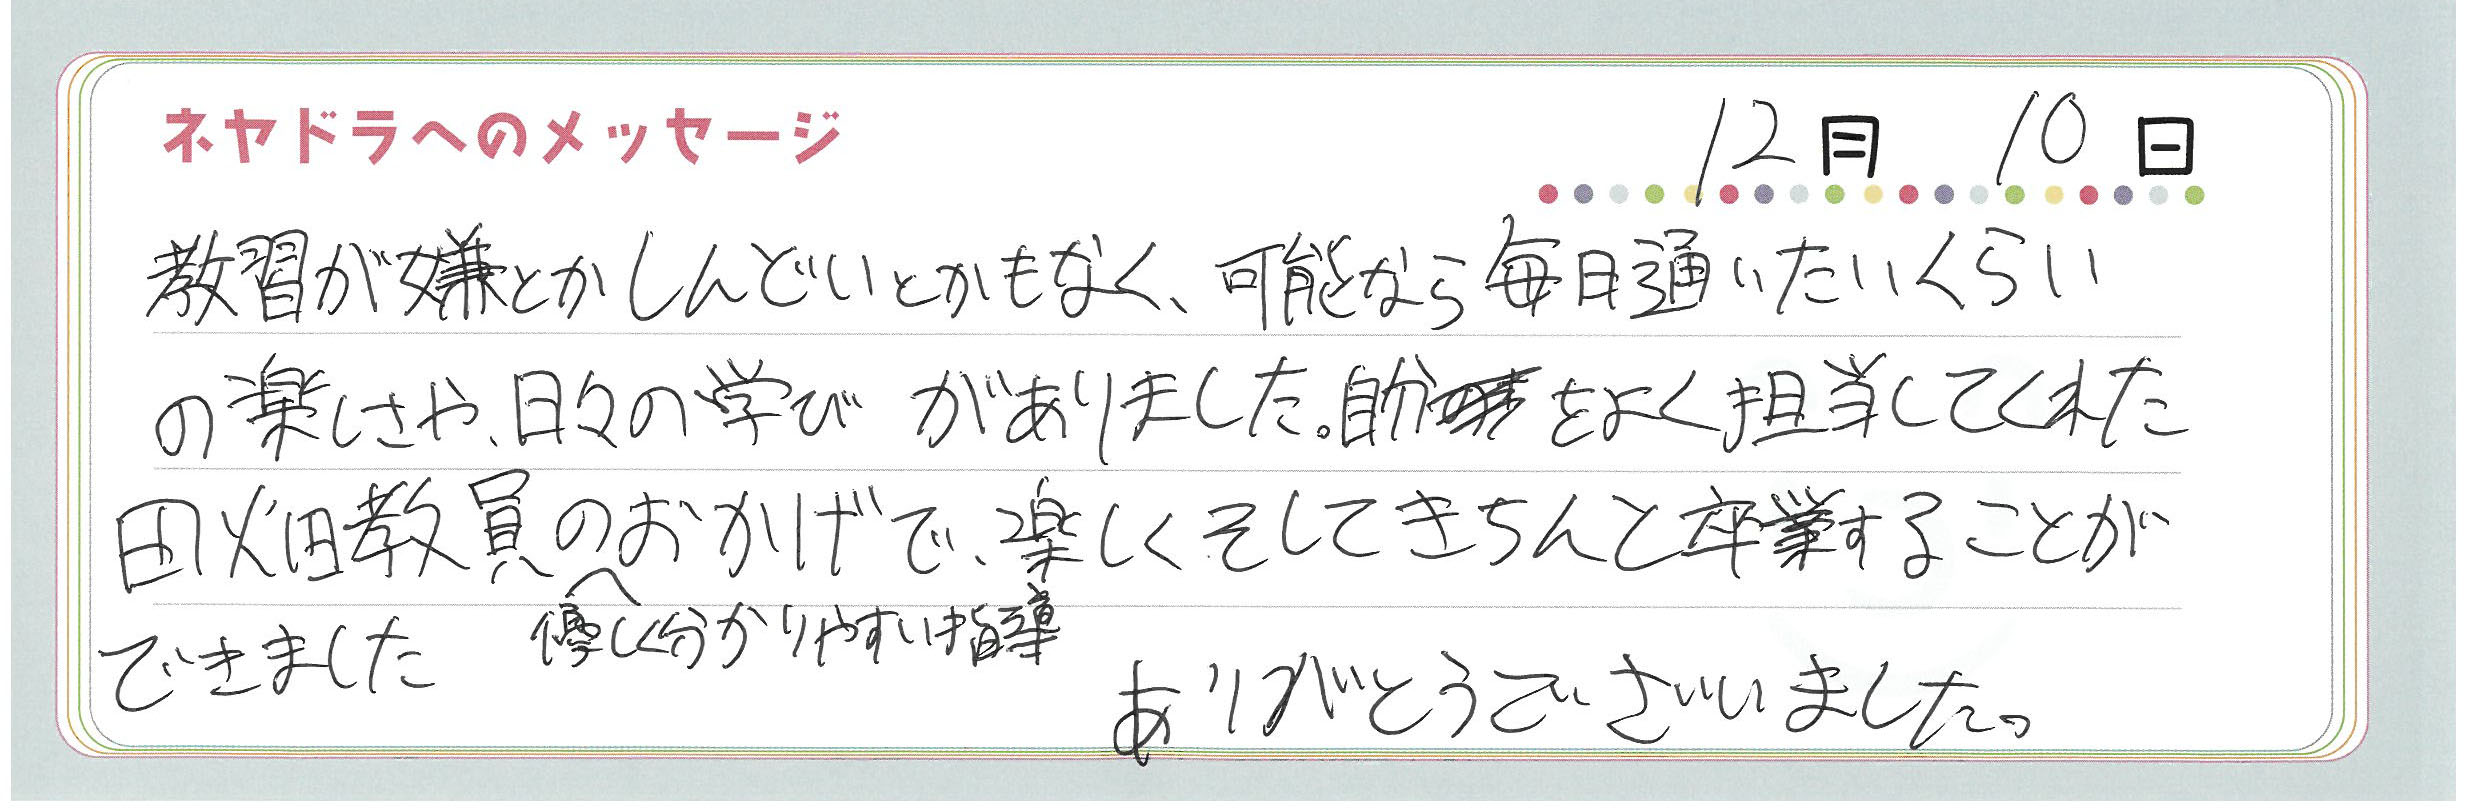 ネヤドラへのメッセージ
12月 10日
教習が嫌とかしんどいとかもなく、可能なら毎日通いたいくらい
の楽しさや、日々の学びがありました。自分をよく担当してくれた
田畑教員のおかげで、楽しくそしてきちんと卒業することが
優しく分かりやすい指導
できました
ありがとうございました。